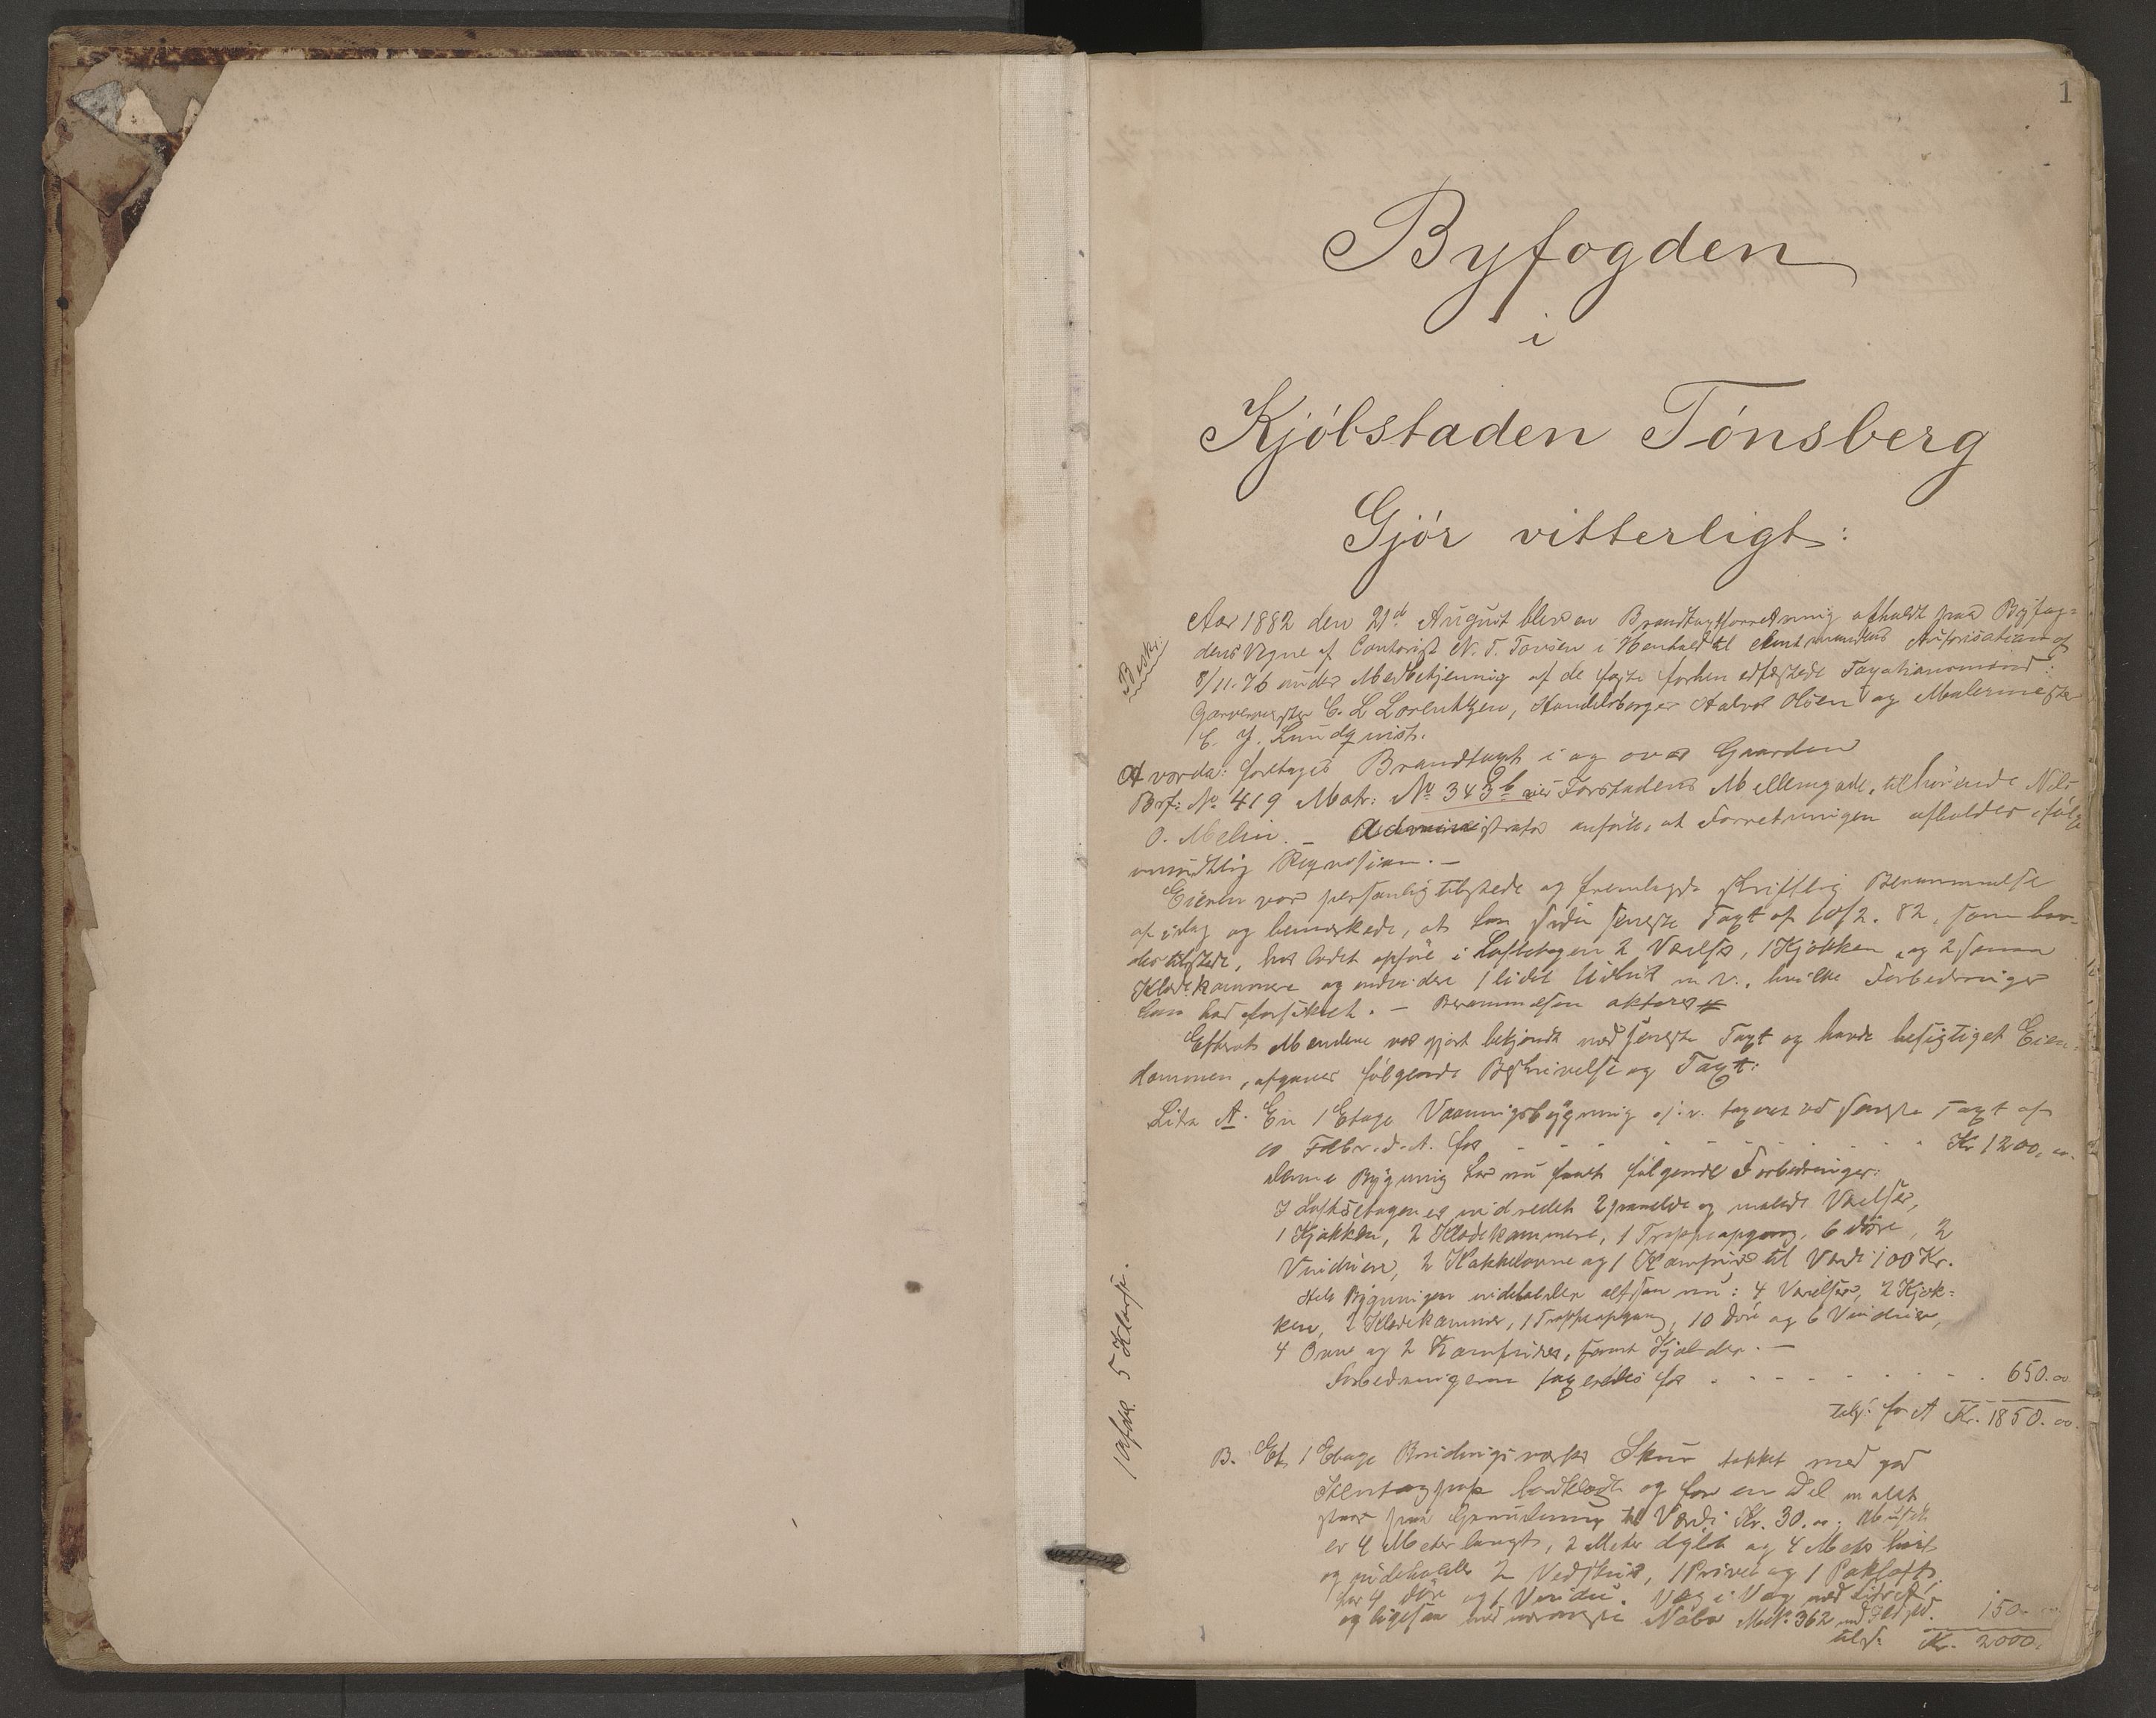 1
Byfogden
i
Kjóbstaden Tónsberg
Gjór vitterligt:
Aar 1882 den 21d August blev en Brandtaxtforretning afholdt paa Byfog-
dens Vegne af Contorist N. T. Tovsen i Henhold til Amtmandens Autorisation af
8/11.76 under Medbetjening af de faste forhen edfæstede Taxationsmænd:
Garvermester C. L Lorentzen, Handelsborger Halvor Olsen og Malermester
C. J. Lundqvist.
foretages Brandtaxt i og over Gaarden
Brf: No 419 Matr: No 343b Forstadens Møllegade, tilhørende Nils
O. Melin. - Administrator anførte, at Forretningen afholdes ifølge
mundtlig Reqvisition. -
Eieren var personlig tilstede og fremlagde skriftlig Berammelse
af idag og bemærkede, at han siden seneste Taxt af 10/2. 82, som hav-
des tilstede, har ladet opføre i Loftetagen 2 Værelser, 1 Kjøkken og 2 smaa
Klædekammere og endvidere 1 lidet Udhus m. v., hvilke Forbedringer
han har forsikret. - Berammelsen
Efterat Mændene var gjort bekjendt med seneste Taxt og havde besigtiget Eien-
dommen, afgaves følgende Beskrivelse og Taxt:
Litr A. En 1 Etage Vaaningsbygning taxeret ved seneste Taxt af
10 Febr. d. A. for - - - Kr 1200, 00.
denne Bygning har nu faaet følgende Forbedringer:
I Loftsetagen er indredet 2 panelede og malede Værelser,
1 Kjøkken, 2 Klædekammere, 1 Trappeopgang, 6 Døre, 2
Vinduer, 2 Kakkelovne og 1 Komfur til Værdi 100 Kr.
Hele Bygningen indeholder altsaa nu: 4 Værelser, 2 Kjøk-
ken, 2 Klædekammer, 1 Trappeopgang, 10 Døre og 6 Vinduer,
4 Ovne og 2 Komfurer, samt Kjælder. -
Forbedringerne taxeredes for - - - 650.00
tils: for A Kr. 1850. 00.
B. Et 1 Etage Bindingsværks Skur tækket med god
Stentagpap bordklædt og for en Del malet
staar paa Grundmur til Værdi Kr. 30. 00.
er 4 Meter langt, 2 Meter dybt og 4 Meter høit
og indeholder 2 Vedskur, 1 Privet og 1 Pakloft,
har 4 Døre og 1 Vindu. Væg i Væg med
og ligesaa med nærmeste Nabo M.No. 362 150.
tils. Kr. 2000.
1 Afdl. 5 Klasse.